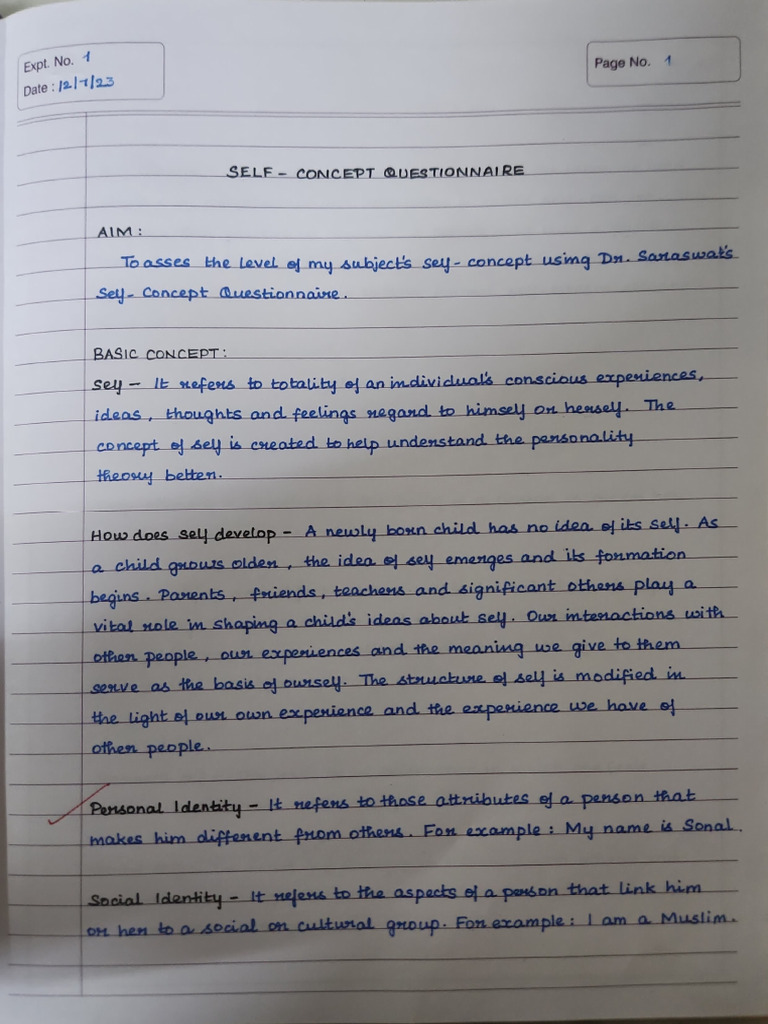 Expt. No. 1
Date : 12/7/23
Page No. 1
SELF - CONCEPT QUESTIONNAIRE
AIM :
To asses the level of my subject's self-concept using Dr. Saraswat's
Self-Concept Questionnaire.
BASIC CONCEPT :
Self - It refers to totality of an individual's conscious experiences,
ideas, thoughts and feelings regard to himself or herself. The
concept of self is created to help understand the personality
theory better.
How does self develop - A newly born child has no idea of its self. As
a child grows older, the idea of self emerges and its formation
begins. Parents, friends, teachers and significant others play a
vital role in shaping a child's ideas about self. Our interactions with
other people, our experiences and the meaning we give to them
serve as the basis of ourself. The structure of self is modified in
the light of our own experience and the experience we have of
other people.
Personal Identity - It refers to those attributes of a person that
makes him different from others. For example : My name is Sonal.
Social Identity - It refers to the aspects of a person that link him
or her to a social or cultural group. For example : I am a Muslim.